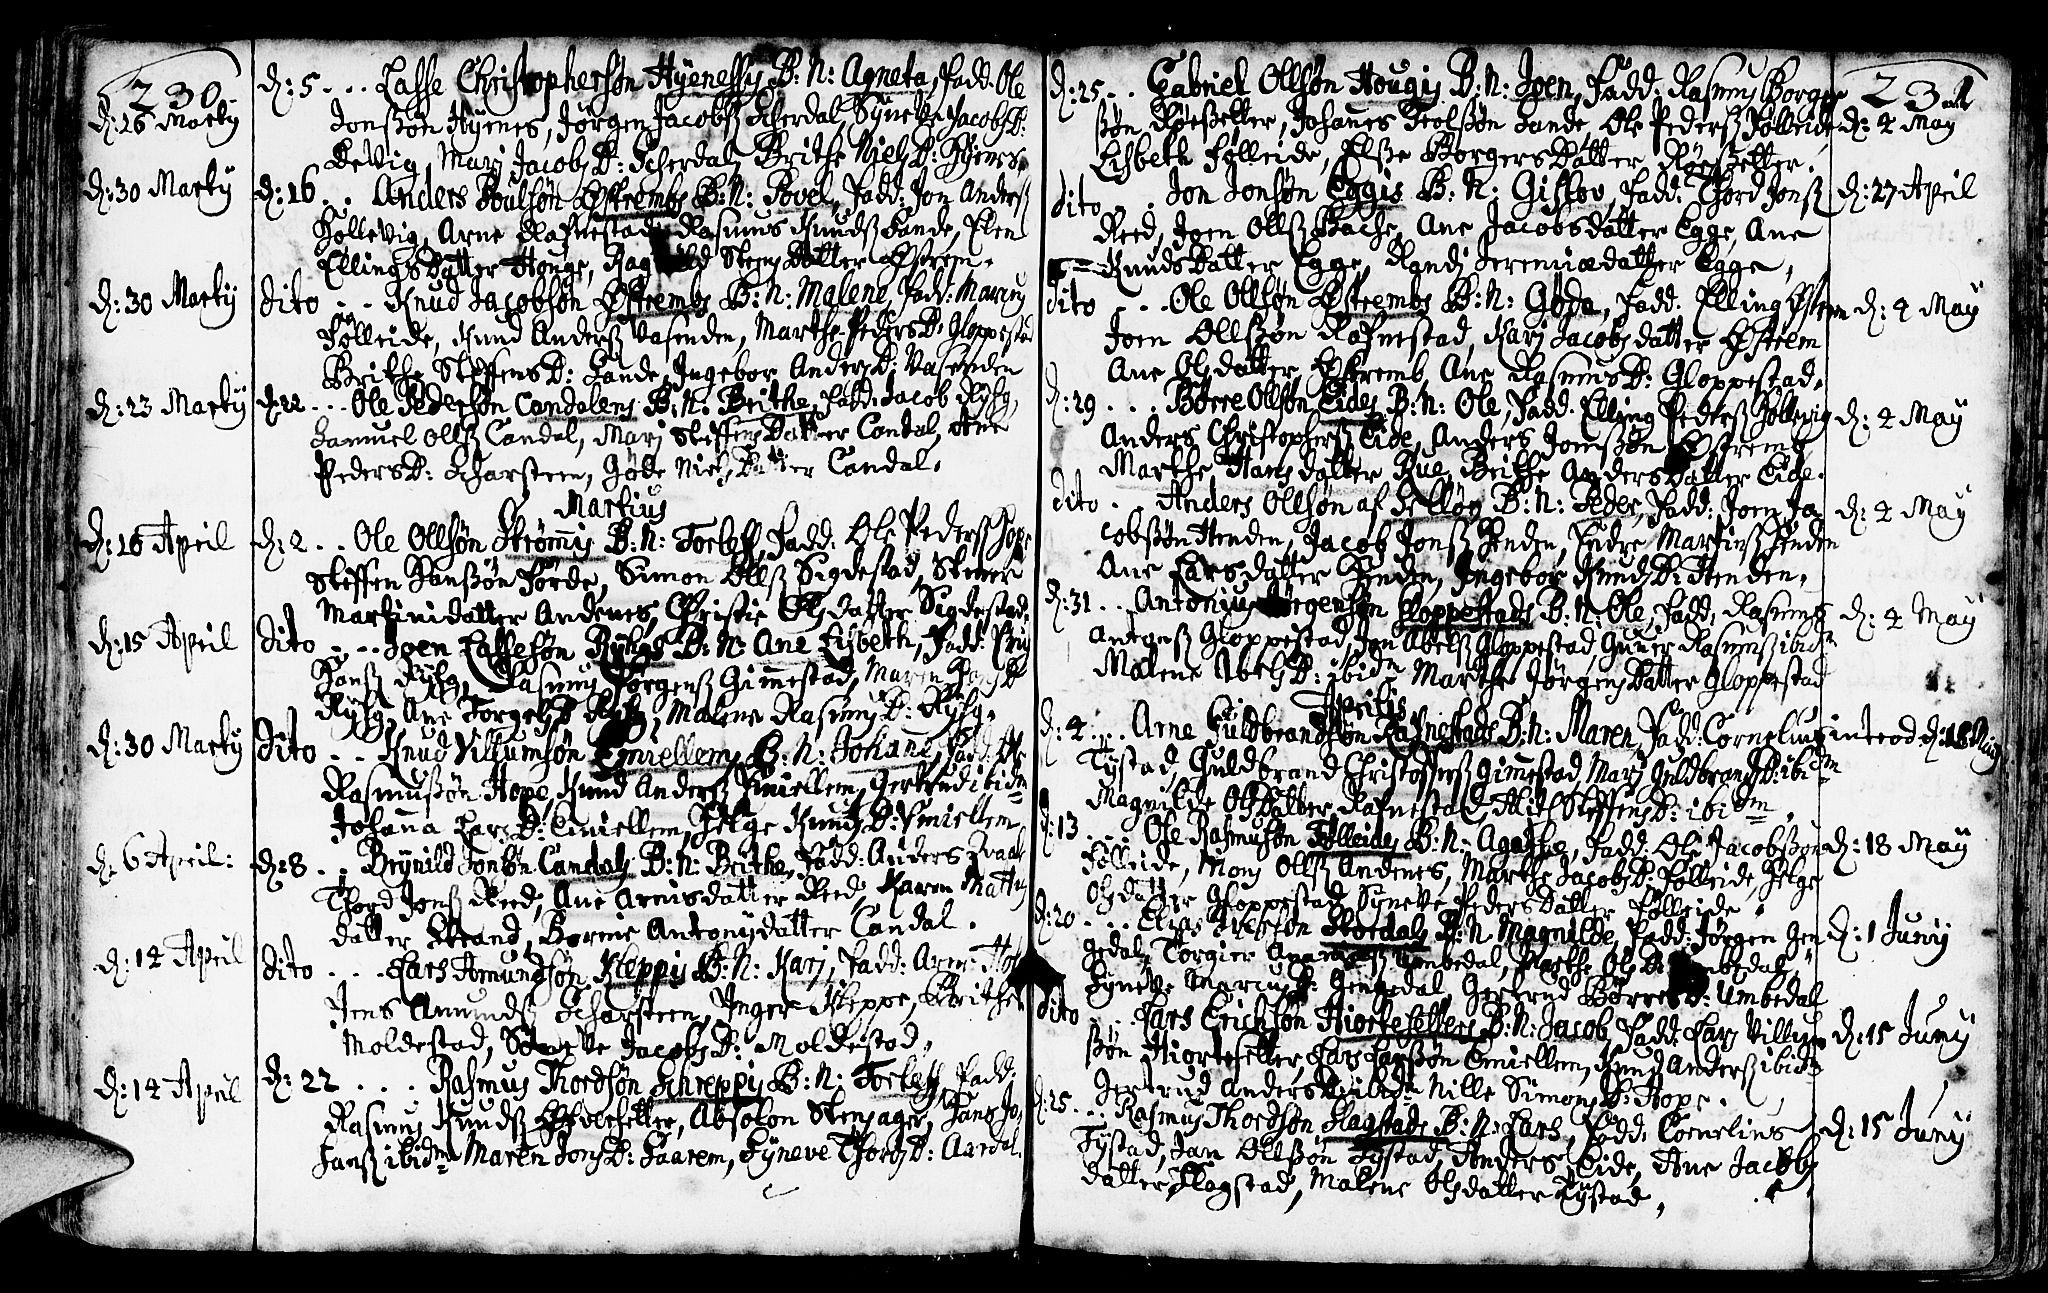 230
d: 16 Marty
d: 5 . . . Lasse Christophersøn Hÿenessis B: N: Agneta, Fadd: Ole
Jonssøn Hÿenes, Jørgen Jacobs Scherdal, Syneve Jacobs D:
Devig, Mari Jacobs D: Scherdal, Brithe Niels D: Hÿenes.
d: 30 Marty
d: 16 . . Anders Poulsøn Østrembs B: N: Povel, Fadd: Jon Anderss
Hollevig, Arne Rafnestad, Rasmus Knudss Sande, Elen
Ellings Datter Houge, Steens Datter Østrem.
d: 30 Marty
Dito . . . Knud Jacobsøn Østrembs B: N: Malene, Fadd:
Følleide, Knud Anderss Vasenden, Marthe Peders D: Gloppestad
Brithe Steffens D: Sande, Ingebor Anders D: Vasenden
d: 23 Marty
d: 22 . . . Ole Pedersøn Candalens B: N: Brithe, Fadd: Jacob Rÿsg,
Samuel Olss Candal, Mari Steffens Datter Candal, Ane
Peders D: Scharsteen, Gøde Niels Datter Candal.
Martius
d: 16 April
d: 2 . . Ole Ollsøn Strømis B: N: Torless, Fadd: Ole Pederss Hope
Steffen Hanssøn Førde, Simon Ollss Sigdestad,
Martini datter Andenes, Christie Ols datter Sigdestad.
d: 15 April
Dito . . . Joen Lassesøn B: N: Ane Lisbeth, Fadd:
Hanss Rÿsg, Rasmus Jørgenss Gimestad, Maren Hans D:
Rÿsg, Ane Torgels D: Rÿsg, Malene Rasmus D: Rÿsg.
d: 30 Marty
Dito . . Knud Villumsøn Emiellem B: N: Johane, Fadd: Ole
Rasmussøn Hope, Knud Anderss Emiellem, Gertrud ibidm
Johanna Lars D: Emiellem, Helge Knuds D: Emiellem
d: 6 April:
d: 8 . . Brÿnild Jonsøn Candals B: N: Brithe, Fadd: Anders
Thord Jonss Reed, Ane Arnisdatter Reed, Karen
datter Strand, Borni Antonÿdatter Candal.
d: 14 April
Dito . . . Lars Amundsøn Kleppis B: N: Kari, Fadd: Arne
Jens Amundss Scharsteen, Inger Kleppe, Brithe
Moldestad, Jacobs D: Moldestad.
d: 14 April
d: 22 . . . . Rasmus Thordsøn Schreppis B: N: Torless, Fadd:
Rasmus Knudss, Absolon Steensager, Hans Jo,
hanss ibidm Maren Jons D: Faarem, Syneve Thords D: Aardal.
231
d: 25 . . Gabriel Ollsøn Hougis B: N: Joen, Fadd: Rasmus Borger
søn Røeßetter, Johanes Teolssøn Sande, Ole Pederss Følleide
Lisbeth Følleide, Else Borgers Datter Røeßetter.
d: 4 May
Dito . . . Jon Jonsøn Eggis B: N: Gislov, Fadd: Thord Jonss
Reed, Joen Ollss Bache, Ane Jacobsdatter Egge, Ane
Knuds Datter Egge, Randi Jeremiædatter Egge,
d: 27 April
Dito . . . . Ole Ollsøn Østrembs B: N: Gøde, Fadd: Elling Østrem
Joen Ollssøn Rafnestad, Kari Jacobs datter Østrem
Ane Olsdatter Østremb, Ane Rasmus D: Gloppestad.
d: 4 May
d: 29 . . . Børre Ollsøn Eides B: N: Ole, Fadd. Elling Pederss Hollevig
Anders Christopherss Eide, Anders Jonssøn Østremb
Marthe Hans datter Rue, Brithe Anders datter Eide.
d: 4 May
Dito . . Anders Ollsøn af B: N: Peder, Fadd: Joen Ja
cobssøn Henden, Jacob Jonss Henden, Endre Martinss Henden
Ane Larsdatter Henden, Ingebor Knuds D: Henden,
d: 4 May
d: 31 . . Antonius Jørgensøn Gloppestads B: N: Ole, Fadd: Rasmus
Gloppestad, Jon Abelss Gloppestad, Guner Rasmuss ibidm
Malene Abels D: ibidm Marthe Jørgens Datter Gloppestad
d: 4 May
Aprilis
d: 4 . . . Arne Guldbrandsøn Rafnestads B: N: Maren, Fadd: Cornelius
Tystad, Guldbrand Christofferss Gimestad, Mari Guldbrands D: ibidm
Magnilde Ols Datter Rafnestad, Steffens D: ibidm.
introd d: 18
d: 13 . . . Ole Rasmusøn Følleides B: N: Agathe, Fadd: Ole Jacobssøn
Følleide, Mons Ollss Andenes, Marthe Jacobs D: Følleide, Helge
Olsdatter Gloppestad, Syneve Peders Datter Følleide
d: 18 May
d: 20 . . . Elias B: N: Magnilde, Fadd: Jørgen Gen
gedal, Torgier Umbedal, Marthe Ols D: Umbedal,
Syneve D: Gengedal, Gertrud Børres D: Umbedal
d: 1 Juny
Dito . . . Lars Ericksøn Hiortesetters B: N: Jacob, Fadd: Lars Villum
søn Hiortesetter, Lars Larssøn Emiellem, Knud Anderss ibidm
Gertrud Anders D: ibidm Nille Simons D: Hope.
d: 15 Juny
d: 25 . . . Rasmus Thordsøn Flagstads B: N: Lars, Fadd: Cornelius
Tystad, Jan Ollssøn Tystad, Anders Eide, Ane Jacobs
datter Flagstad, Malene Olsdatter Tystad,
d: 15 Juny